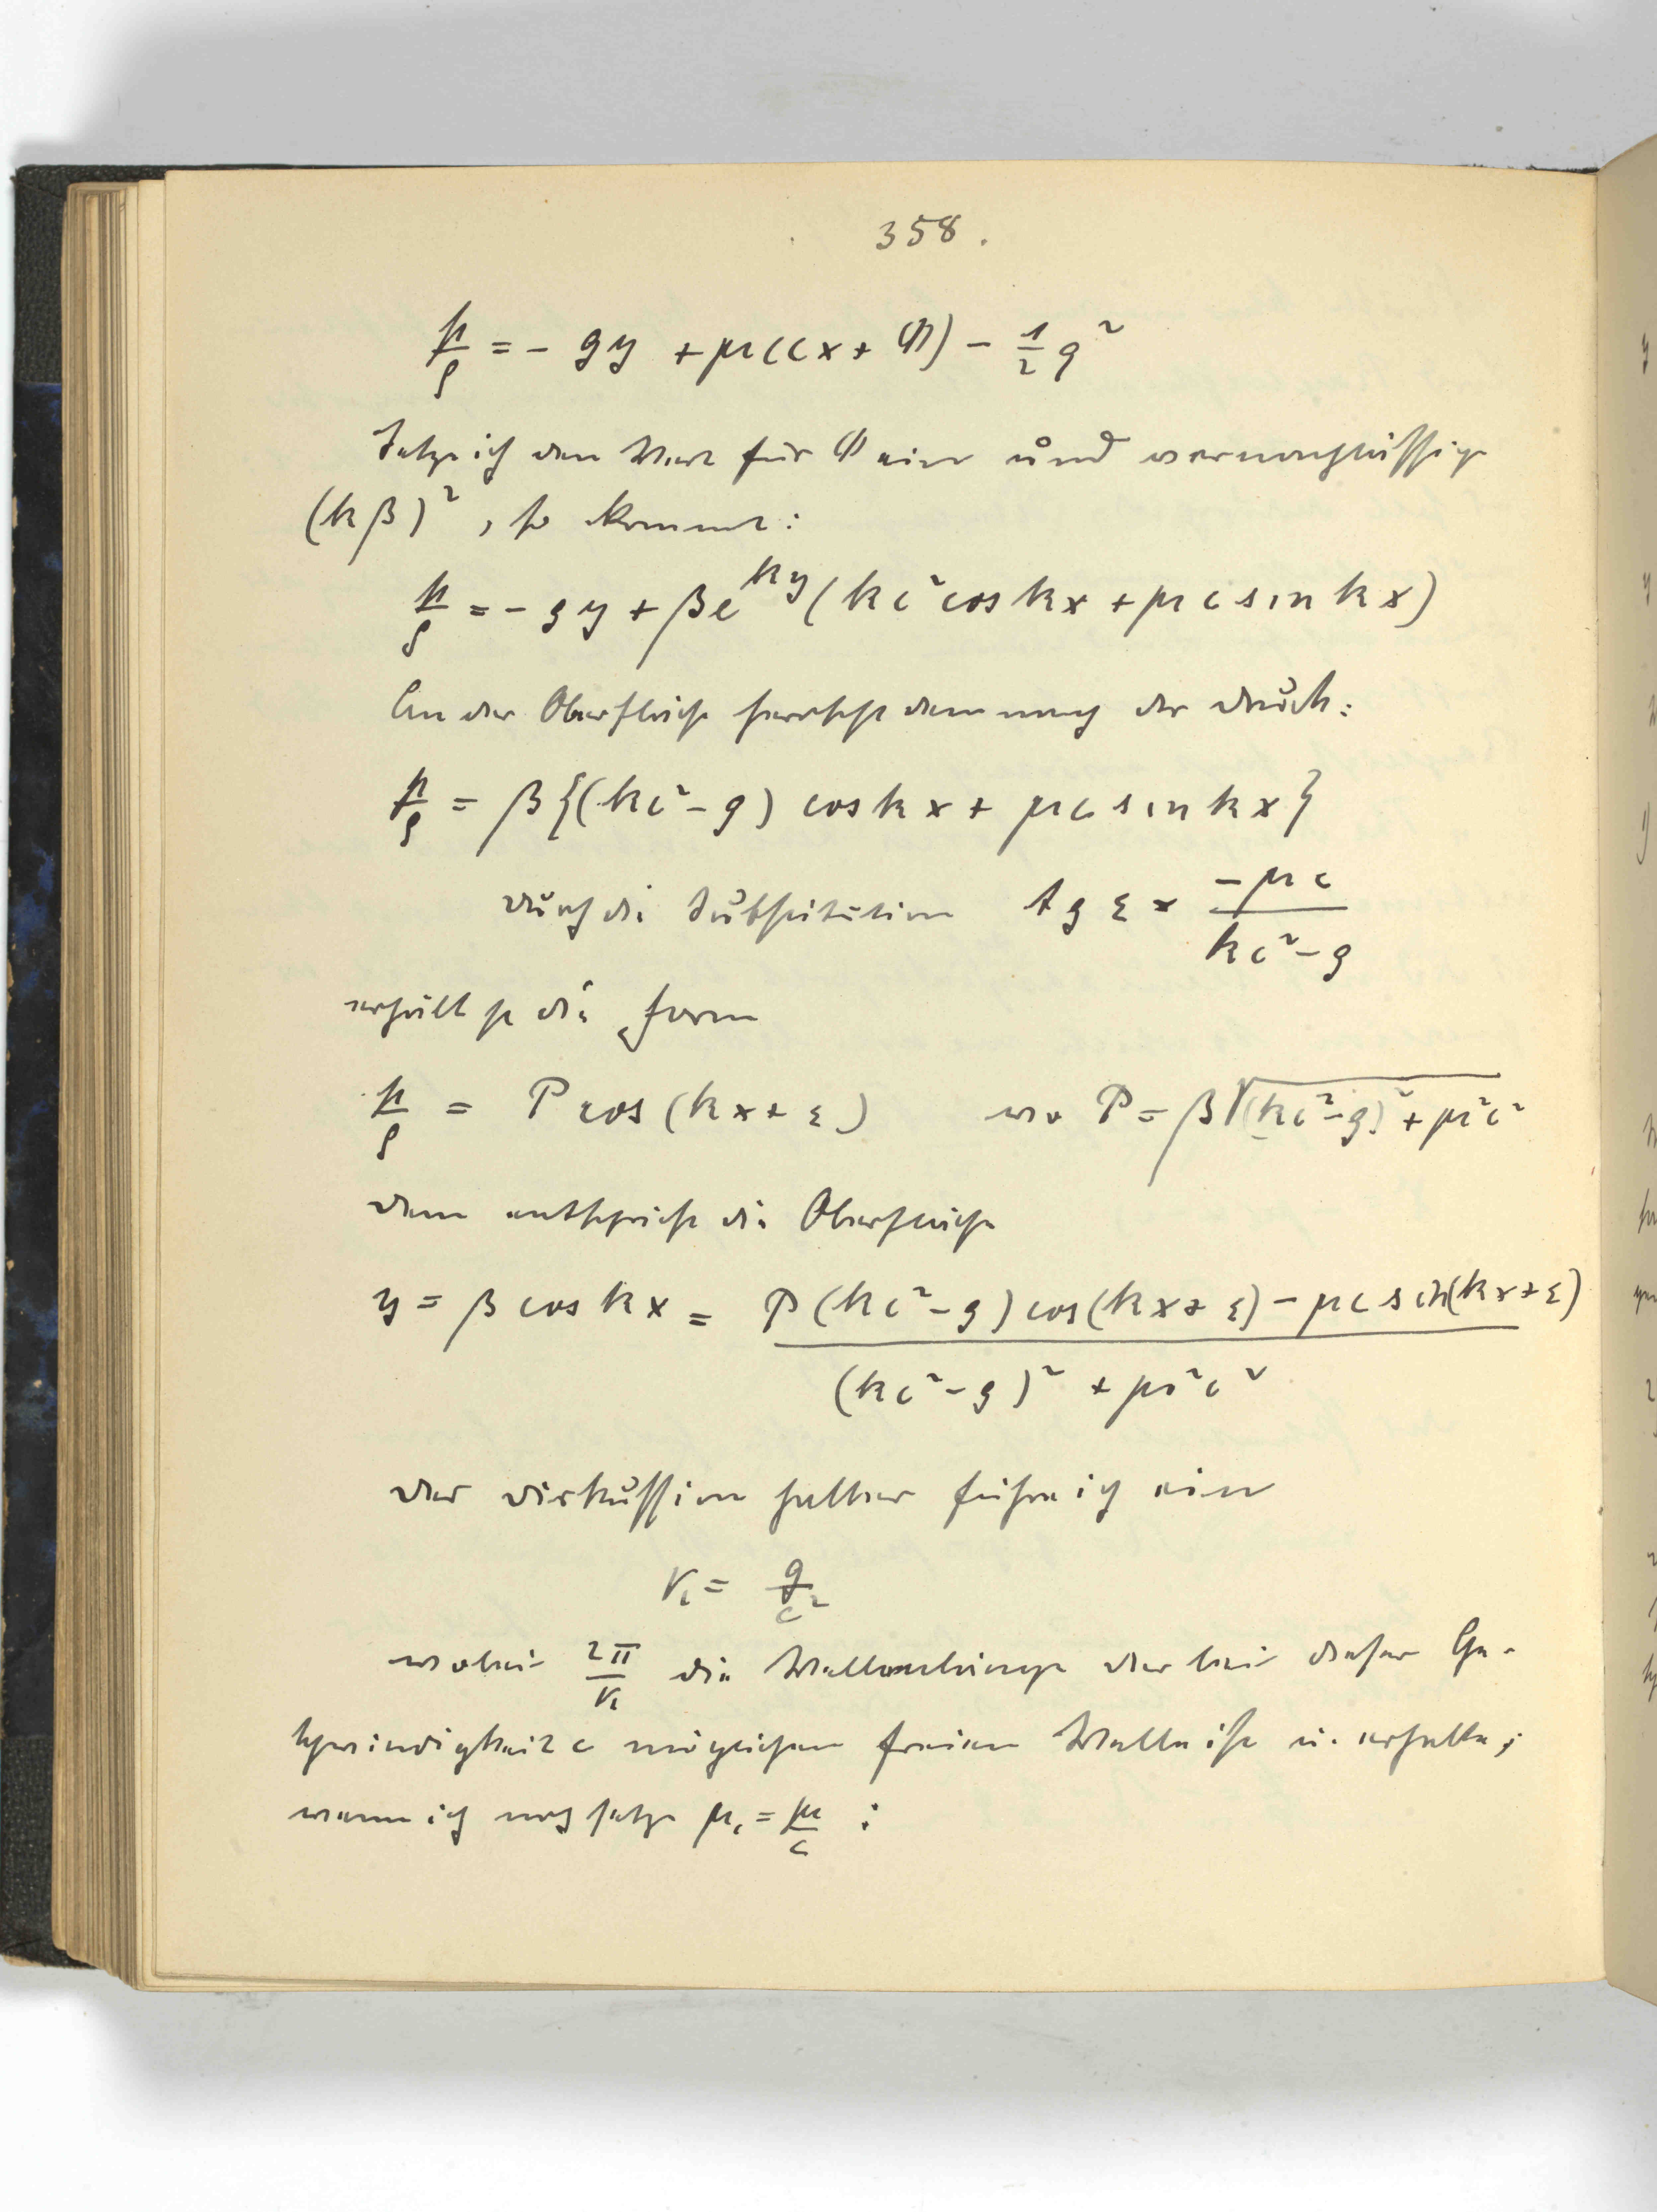 358.
p/ρ = - gy + μ(cx + Φ) - 1/2 q²
Setze ich den Wert für Φ ein und vernachlässige
(kβ)², so kommt:
p/ρ = - gy + βe^{ky}(kc² cos kx + μc sin kx)
An der Oberfläche herrscht demnach der Druck:
p/ρ = β{(kc² - g) cos kx + μc sin kx}
Durch die Substitution tg ε = -μc/(kc² - g)
erhält p die Form
p/ρ = P cos(kx + ε) wo P = β√((kc² - g)² + μ²c²)
Dem entspricht die Oberfläche
y = β cos kx = P(kc² - g) cos(kx + ε) - μc sin(kx + ε)
(kc² - g)² + μ²c²
Der Diskussion halber führe ich ein
κ₁ = g/c²
wobei 2π/κ₁ die Wellenlänge der bei dieser Ge-
schwindigkeit c möglichen freien Welle ist u. erhalte,
wenn ich noch setze μ₁ = μ/c :